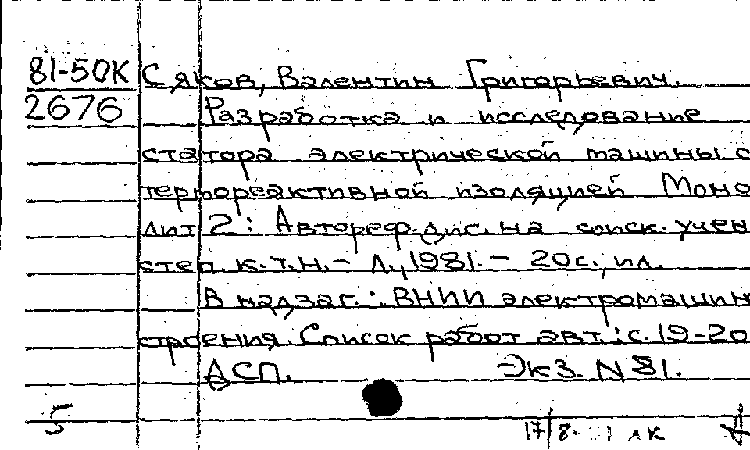 81-50К Сяков, Валентин Григорьевич.
2676 Разработка и исследование
статора электрической машины с
термореактивной изоляцией Моно
лит 2: Автореф. дис. на соиск. учен
степ к.т.н. - Л., 1981. - 20с., ил.
В надзаг.: ВНИИ электромашин
строения. Список работ авт.: с. 19-20
ДСП. Экз. N 81.
5 17/8-